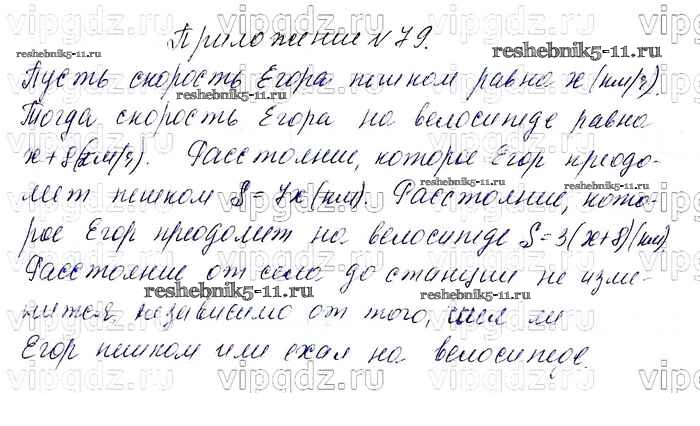 Приложение № 79.
Пусть скорость Егора пешком равна x (км/ч).
Тогда скорость Егора на велосипеде равна
x+8 (км/ч). Расстояние, которое Егор преодо-
леет пешком S = 7x (км). Расстояние, кото-
рое Егор преодолеет на велосипеде S = 3(x+8) (км).
Расстояние от села до станции не изме-
нится, независимо от того, шел ли
Егор пешком или ехал на велосипеде.
reshebnik5-11.ru
reshebnik5-11.ru
reshebnik5-11.ru
reshebnik5-11.ru
reshebnik5-11.ru
reshebnik5-11.ru
vipgdz.ru
vipgdz.ru
vipgdz.ru